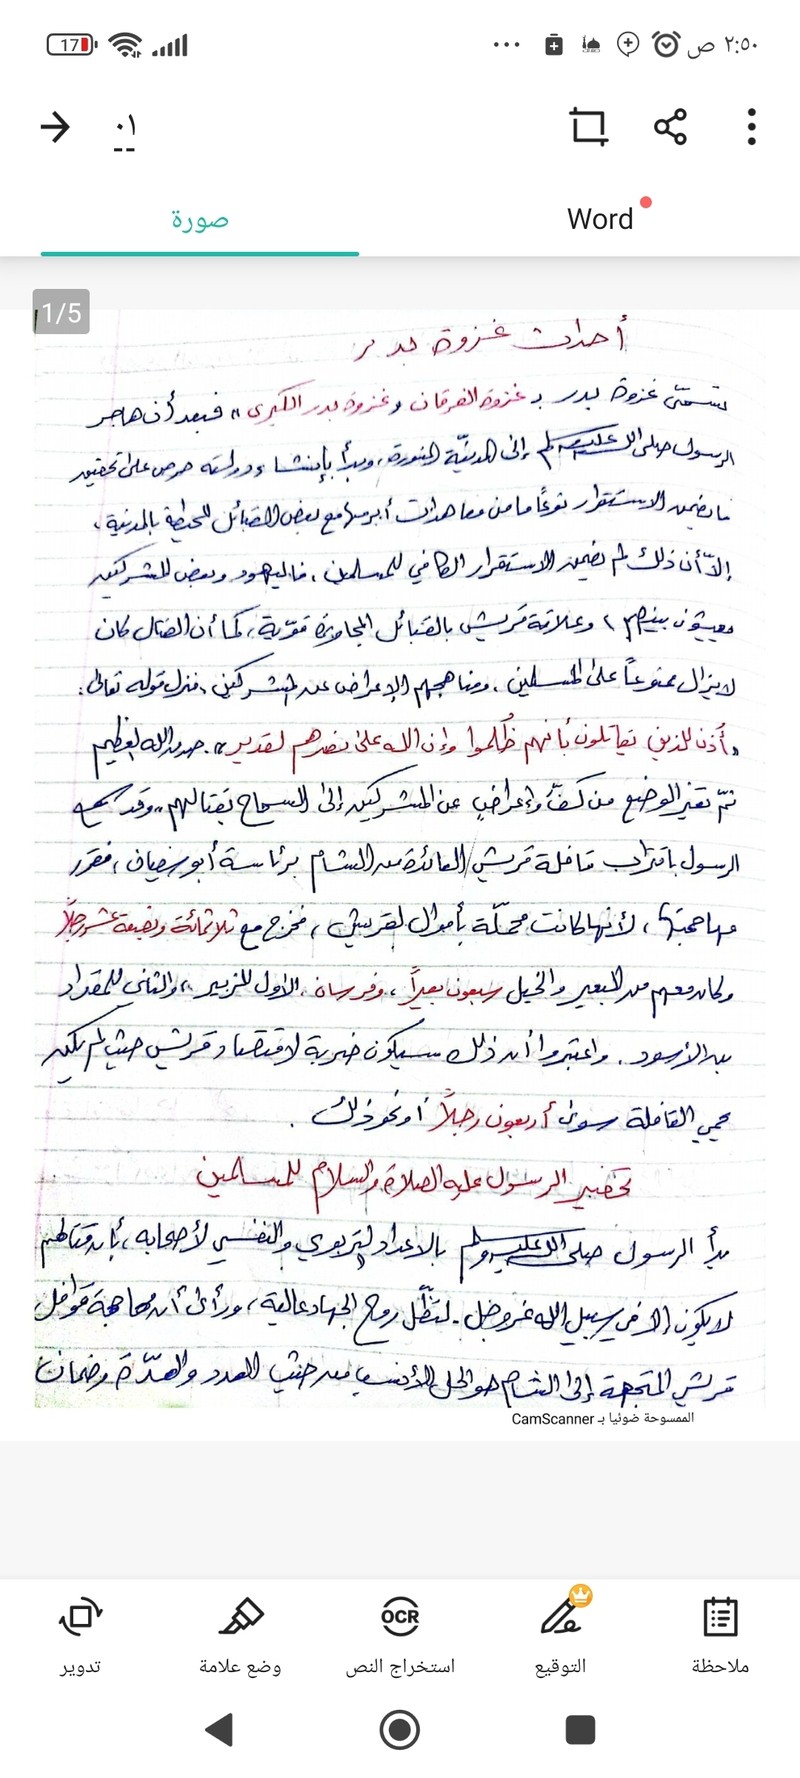 ٢:٥٠ ص
17
٠١
صورة
Word
1/5
أحداث غزوة بدر
تسمّى غزوة بدر بـ غزوة الفرقان وغزوة بدر الكبرى، فبعد أن هاجر
الرسول صلى الله عليه وسلم إلى المدينة المنورة، وبدأ بإنشاء دولته حرص على تحقيق
ما يضمن الاستقرار نوعاً ما من معاهدات أبرمها مع بعض القبائل المحيطة بالمدينة،
إلاّ أن ذلك لم يضمن الاستقرار الكافي للمسلمين، فاليهود وبعض المشركين
يعيشون بينهم، وعلاقة قريش بالقبائل المجاورة قوية، كما أن القتال كان
لايزال ممنوعاً على المسلمين، ومناهجهم الإعراض عن المشركين، فنزل قوله تعالى:
"أذن للذين يقاتلون بأنهم ظُلموا وإن الله على نصرهم لقدير". صدق الله العظيم
تمّ تغير الوضع من كفّ وإعراض عن المشركين إلى السماح بقتالهم، وقد سمع
الرسول باقتراب قافلة قريش العائدة من الشام برئاسة أبو سفيان، فقرر
مهاجمتها، لأنها كانت محمّلة بأموال لقريش، فخرج مع ثلاثمائة وبضعة عشر رجلاً
وكان معهم من البعير والخيل سبعون بعيراً، وفرسان، الأول للزبير، والثاني للمقداد
بن الأسود. واعتبروا أن ذلك سيكون ضربة لاقتصاد قريش حيث لم يكن
يحمي القافلة سوى أربعون رجلاً أو نحو ذلك.
تحضير الرسول عليه الصلاة والسلام للمسلمين
بدأ الرسول صلى الله عليه وسلم بالاعداد التربوي والنفسي لأصحابه، بأن قتالهم
لا يكون إلا في سبيل الله عز وجل. لتظّل روح الجهاد عالية، ورأى أن مهاجمة قوافل
قريش المتجهة إلى الشام هو الحل الأنسب من حيث العدد والعدّة وضمان
الممسوحة ضوئيا بـ CamScanner
ملاحظة
التوقيع
OCR
استخراج النص
وضع علامة
تدوير